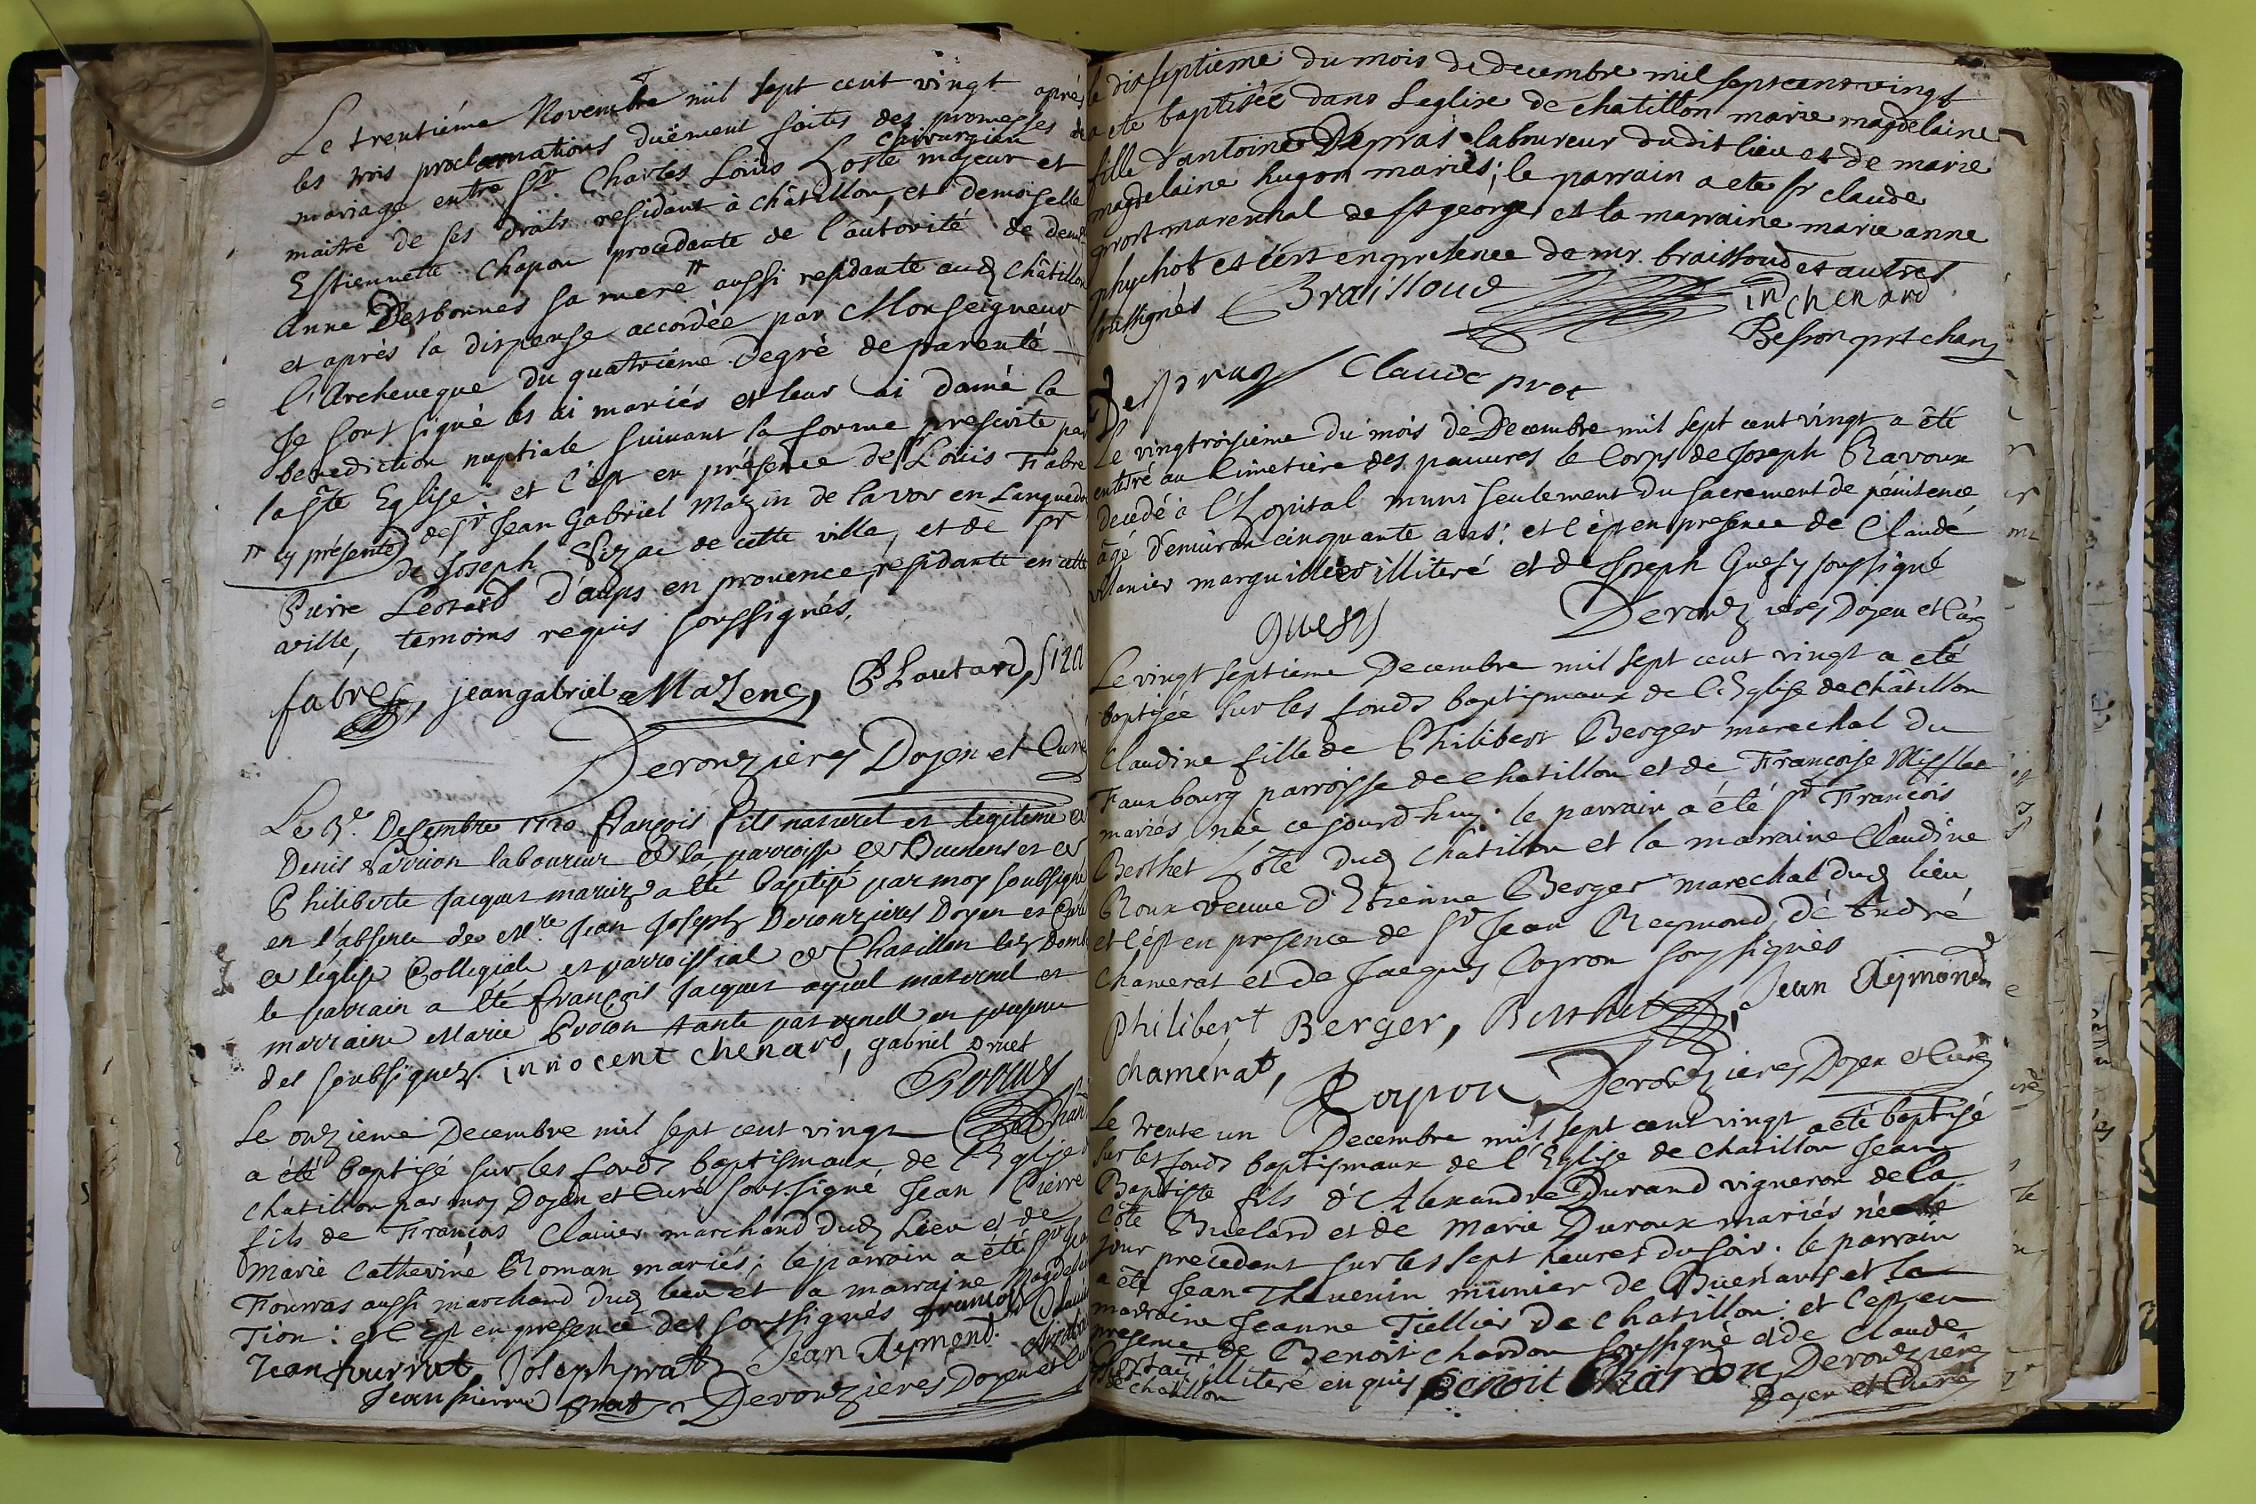 Le trentiéme Novembre mil sept cent vingt aprés
les trois proclamations duëment faites des promesses de
mariage entre Sr. Charles Loüis Loste chirurgien majeur et
maitre de ses droits residant à châtillon, et demoiselle
Estiennette Chapon procedante de l'autorité de demlle
Anne Desbonnes sa mere # aussi residante aud Châtillon
et aprés la dispense accordée par Monseigneur
l'Archeveque du quatriéme degré de parenté
Je soussigné les ai mariés et leur ai donné la
benediction nuptiale suivant la forme prescrite par
la Ste Eglise. et c'est en présence de Sr Louis Fabre
# cy présente de Sr Jean Gabriel Mazin de Lavor en Languedoc
de Joseph Sizac de cette ville, et de Sr
Pierre Leotard d'aups en provence, residante en cette
ville, temoins requis soussignés.
fabre jean gabriel Mazenc, P Lautard, siza
Derouzieres Doyen et Curé
Le 3e. Desembre 1720 françois fils naturel et legitime de
Denis laboureur de la parroisse de et de
Philiberte Jacquet mariez a été baptisé par moy soubsigné
en l'absence de Mre Jean Joseph Derouzieres Doyen et Curé
de leglise Collegiale et parroissial de Chatillon les Domb
le parrain a été françois Jacquet ayeul maternel et
marraine Marie tante paternelle en presence
des soubsignez. innocent chenard, gabriel druet
Le onzieme Decembre mil sept cent vingt
a été baptisé sur les fonds baptismaux de l'Eglise de
chatillon par moy Doyen et Curé soussigné Jean Pierre
fils de François Clavier marchand dud Lieu et de
Marie Catherine Roman mariés; le parrain a été Sr Jean
Fourras aussi marchand dud lieu et la marraine Magdelaine
Tion: et c'est en presence des soussignés françois
Jean fourrat Joseph prat Jean Reymond.
Jean pierre prat Derouzieres Doyen et Curé
le dixseptieme du mois de decembre mil sept cent vingt
a ete baptisée dans L'eglise de chatillon marie magdelaine
fille d'antoine Depras laboureur dudit lieu et de marie
magdelaine hugon mariés; le parrain a ete Sr claude
prost marenchal de St george et la marraine marie anne
phychot et c'est en presence de mr. braissoud et autres
soussignés Braissoud ind chenard
Besson prt chan
Claude prot
Le vingtroisieme du mois de Decembre mil sept cent vingt a été
enterré au Cimetiére des pauures le Corps de Joseph Ravoux
decedé à l'Hopital muni seulement du sacrement de pénitence
âgé d'environ cinquante ans: et c'est en presence de Claude
Manier marguillier illiteré et de Joseph Guesy soussigné
guesy Derouzieres Doyen et Curé
Le vingt septieme Decembre mil sept cent vingt a été
baptisée sur les fonds baptismaux de l'Eglise de châtillon
Claudine fille de Philibert Berger marechal du
Fauxbourg parroisse de chatillon et de Françoise
mariés née ce jourd'huy. le parrain a été Sr François
Berthet Lôte dud Châtillon et la marraine Claudine
Roux veuve d'Etienne Berger marechal dud lieu
et c'est en presence de Sr Jean Reymond, de André
Chamerat et de Jacques Coyron soussignés
Philibert Berger, Berthet, Jean Rymond
chamérat, Coyron Derouzieres Doyen et Curé
Le trente un Decembre mil sept cent vingt a été baptisé
sur les fonds baptismaux de l'Eglise de chatillon Jean
Baptiste fils d'Alexandre Durand vigneron de la
Côte Buelard et de Marie Duroux mariés né le
jour precedent sur les sept heures du soir. le parrain
a été Jean Thevenin munier de Buenans et la
marraine Jeanne Tiellier de chatillon: et c'est en
presence de Benoit chardon soussigné et de Claude
illiteré enquis Benoit Chardon Derouzieres
de chatillon Doyen et Curé